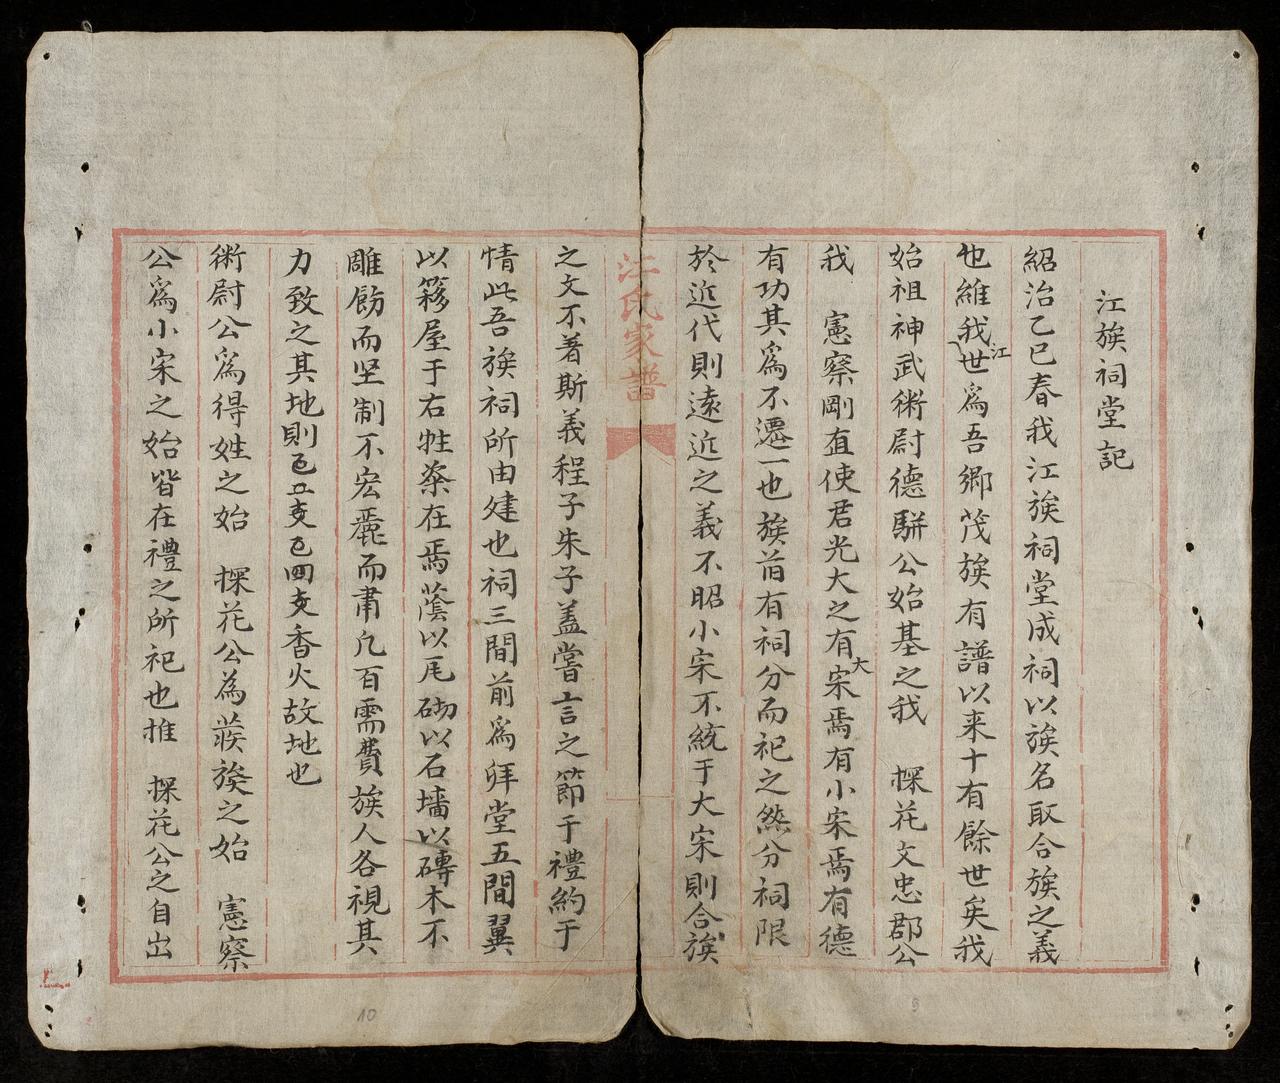 江族祠堂記
紹治乙巳春我江族祠堂成祠以族名取合族之義
也維我江世爲吾鄉茂族有譜以来十有餘世矣我
始祖神武術尉德騈公始基之我 探花文忠郡公
我 憲察剛直使君光大之有大宗焉有小宗焉有德
有功其爲不遷一也族旧有祠分而祀之然分祠限
於近代則遠近之義不昭小宗不統于大宗則合族
江氏家譜
之文不着斯義程子朱子蓋嘗言之節于禮約于
情此吾族祠所由建也祠三間前爲拜堂五間翼
以簃屋于右牲粢在焉蔭以瓦砌以石墙以磚木不
雕飭而坚制不宏麗而肅凡百需費族人各視其
力致之其地則乙五支乙四支香火故地也
術尉公爲得姓之始 探花公為蕟族之始 憲察
公爲小宗之始皆在禮之所祀也推 探花公之自出
9
10